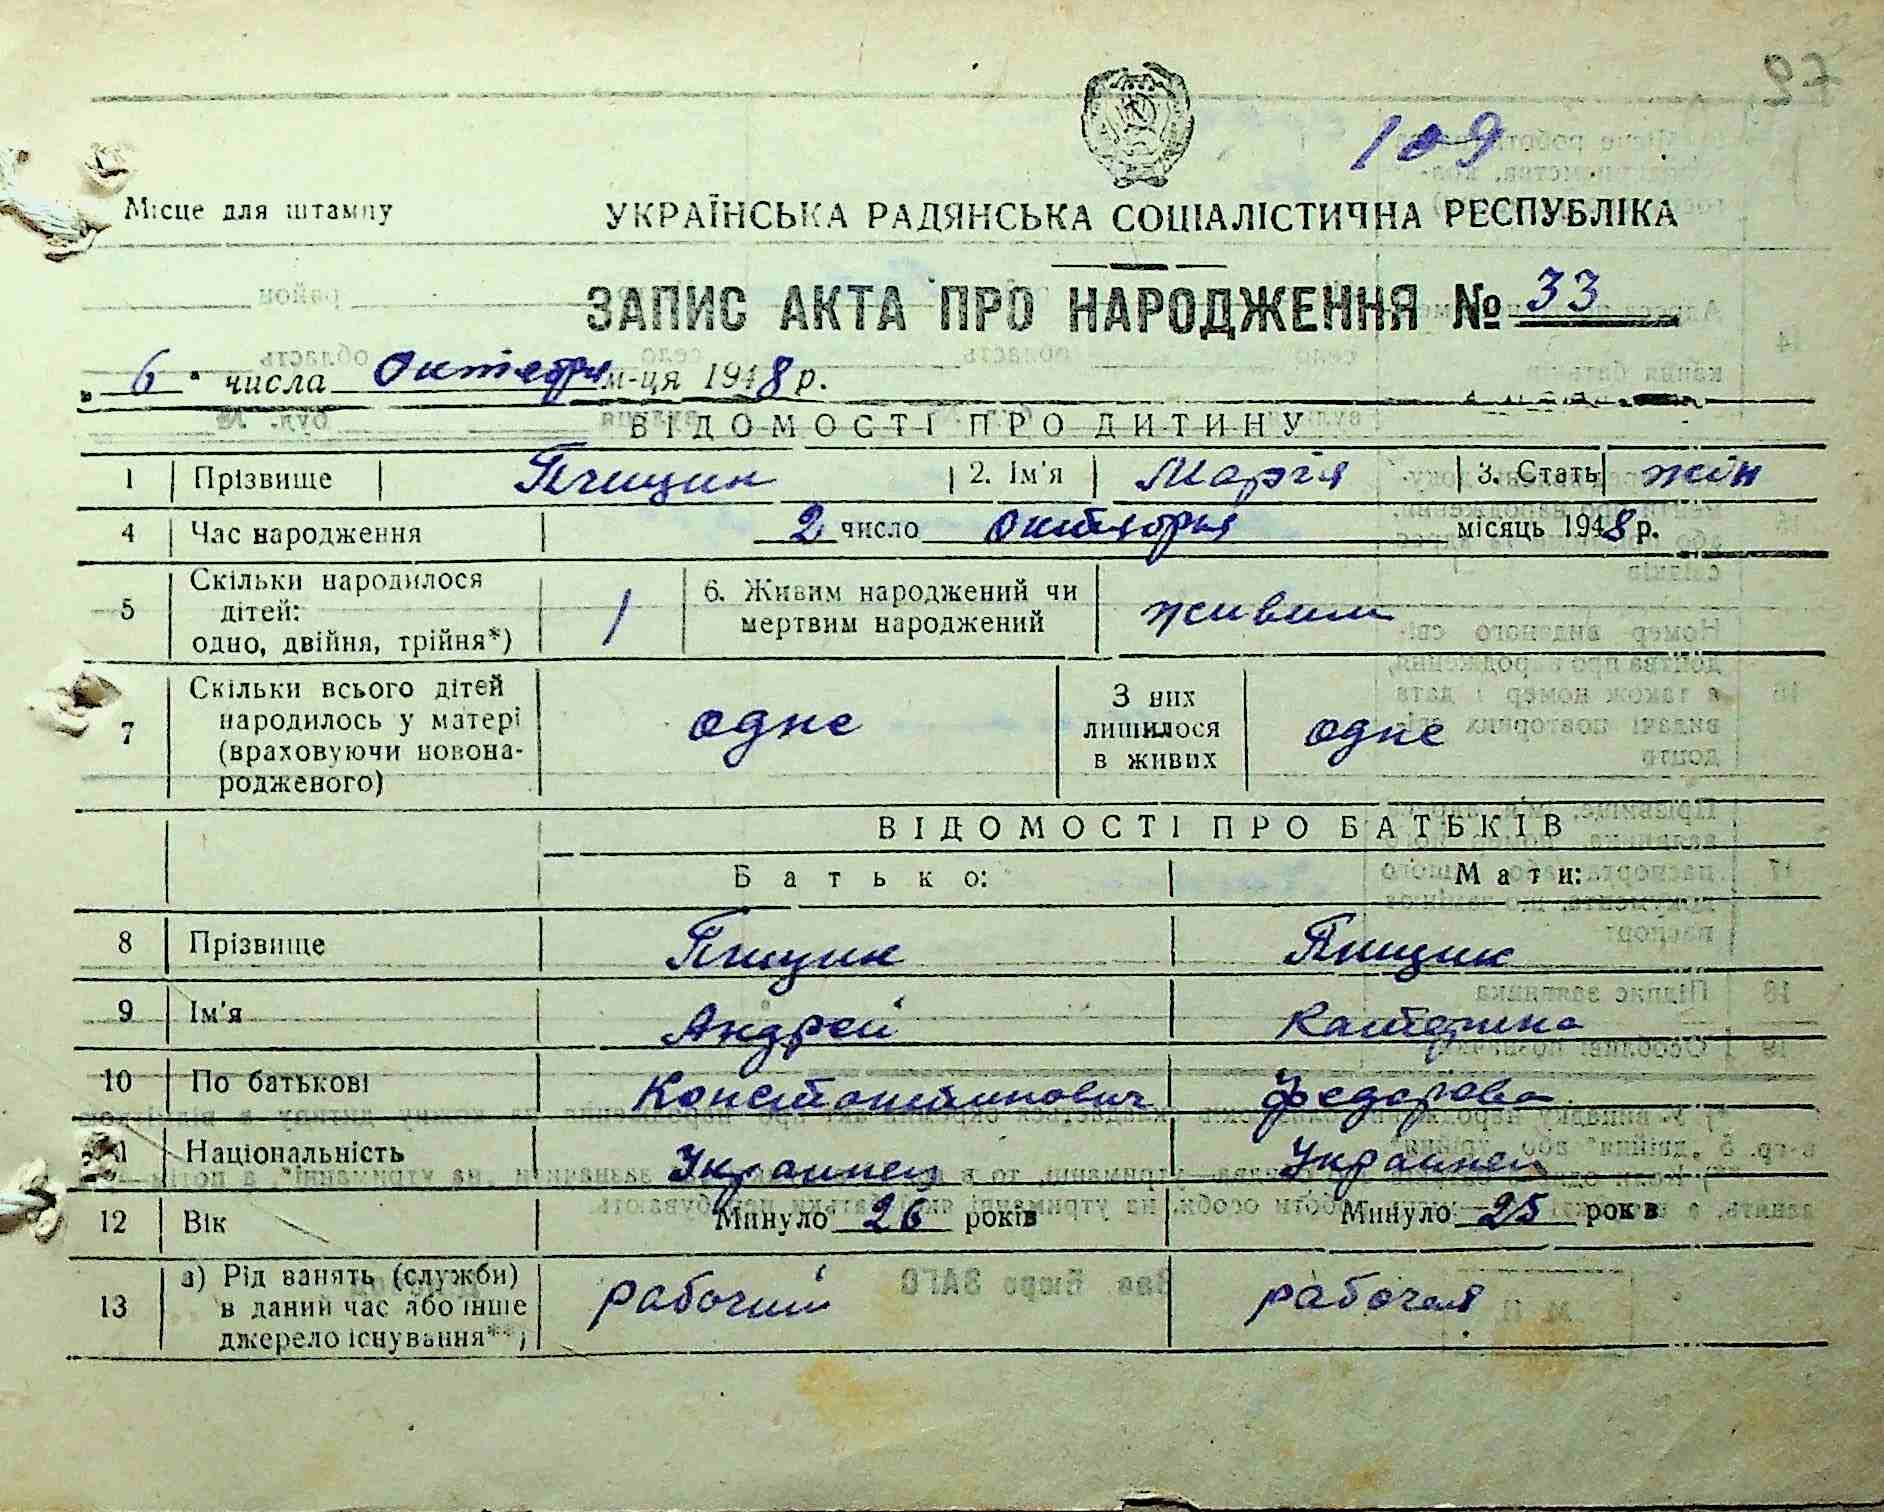 27
109
Місце для штампу
УКРАЇНСЬКА РАДЯНСЬКА СОЦІАЛІСТИЧНА РЕСПУБЛІКА
ЗАПИС АКТА ПРО НАРОДЖЕННЯ № 33
„ 6 " числа Октебря м-ця 1948 р.
ВІДОМОСТІ ПРО ДИТИНУ
1 Прізвище 2. Ім'я Марія 3. Стать жін
4 Час народження 2 число октября місяць 1948 р.
5 Скільки народилося
дітей:
одно, двійня, трійня*) 1 6. Живим народжений чи
мертвим народжений живим
7 Скільки всього дітей
народилось у матері
(враховуючи новона-
родженого) одне З них
лишилося
в живих одне
ВІДОМОСТІ ПРО БАТЬКІВ
Батько: Мати:
8 Прізвище
9 Ім'я Андрей Катерина
10 По батькові Константинович Федорова
11 Національність Украинец Украинец
12 Вік Минуло 26 років Минуло 25 років
13 а) Рід занять (служби)
в даний час або інше
джерело існування**) рабочий рабочая